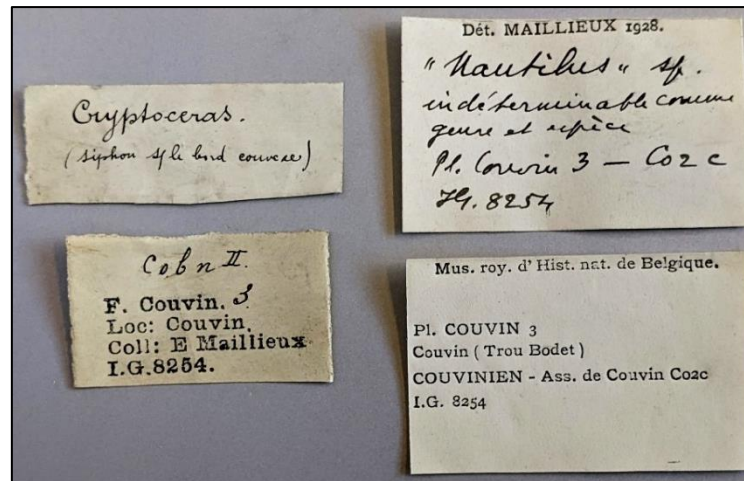 Cryptoceras.
(siphon s/ le bord convexe)
Cobn II.
F. Couvin. 3
Loc: Couvin.
Coll: E Maillieux
I.G.8254.
Dét. MAILLIEUX 1928.
"Nautilus" sp.
indéterminable comme
genre et espèce
Pl. Couvin 3 — Co2c
IG. 8254
Mus. roy. d'Hist. nat. de Belgique.
Pl. COUVIN 3
Couvin ( Trou Bodet )
COUVINIEN - Ass. de Couvin Co2c
I.G. 8254